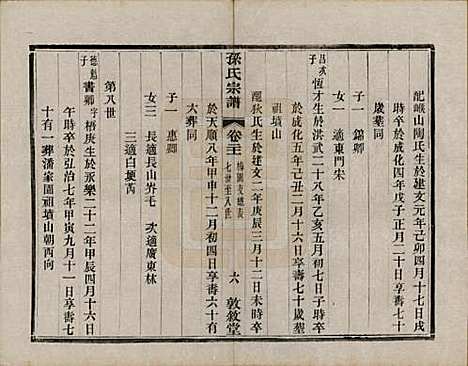 配嶯山陶氏生於建文元年己卯四月十七日戌
時卒於成化四年戊子正月二十日享壽七十
歲墓同
子一 錦卿
女一 適東門宋
昌亥子
恆才生於洪武二十八年乙亥五月初七日子時卒
於成化五年己丑二月十六日享壽七十歲墓
祖墳山
配狄氏生於建文二年庚辰三月十二日未時卒
孫氏宗譜
卷三十
七世至八世
六
敦敘堂
於天順八年甲申十二月初四日享壽六十有
六葬同
子一 惠卿
女三 長適長山岕毛 次適廣東林
三適白埂芮
第八世
德魁子
書卿 字梧庚生於永樂二十二年甲辰四月十六日
午時卒於弘治七年甲寅九月十一日享壽七
十有一葬潘家園祖墳山朝西向